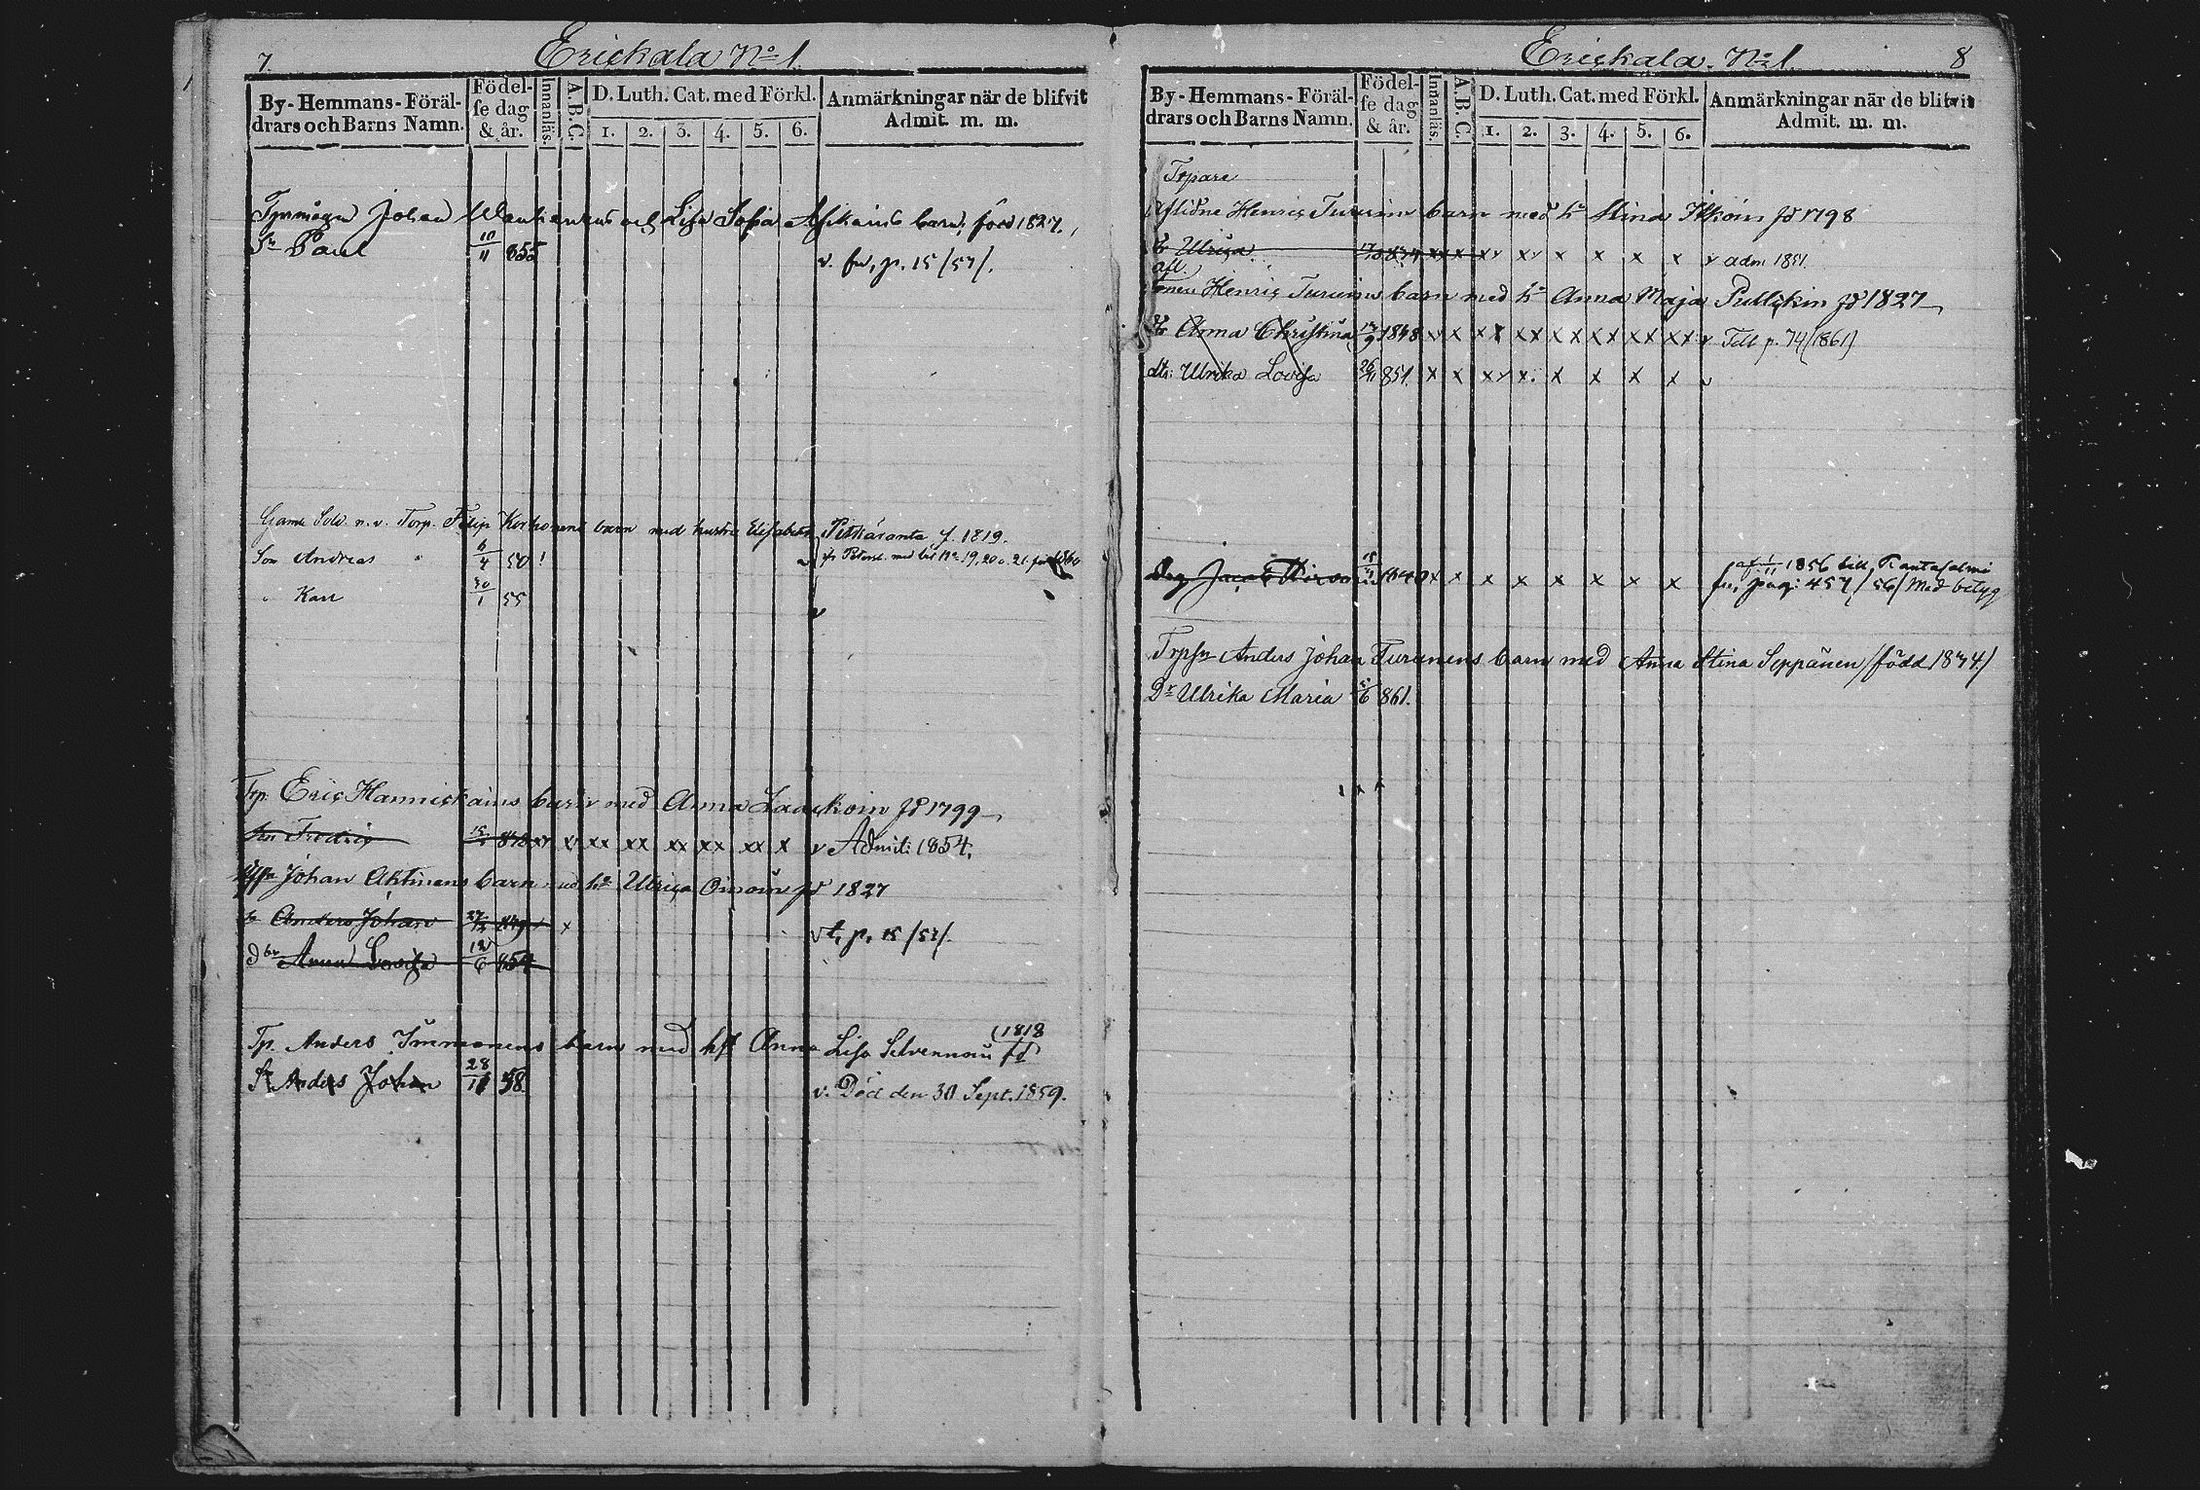 7.
Erickala No 1.
By-Hemmans-Föräl-
drars och Barns Namn.
Födel-
se dag
& år.
Innanläs.
A.B.C.
D. Luth. Cat. med Förkl.
1. 2. 3. 4. 5. 6.
Anmärkningar när de blifvit
Admit. m. m.
Johan och Lisa Sofia barn, född 1827.
Sn Paul 10/11 855 v. fr. p. 15/57/.
Gamla Sold. n. v. Torp. Filip Korhonens barn med hustru Elisabeth Pitkäranta f. 1819.
Son Andreas 6/4 50 !
" Karl 30/1 55 v
Trp. Eric Hannickains barn med Anna Laackoin fd 1799
Sn Fredric xx xx xx xx xx x v Admit: 1854.
Johan Aktinens barn med ha Ulrica Oinoin fd 1827
Anders Johan 27/12 849 x x vt. p. 15/57/.
dtr Anna Lovisa 12/6 854
Tp. Anders Immonens barn med hst Anna Lisa Selvennoin fd 1818
Sn Anders Johan 28/11 58. v. Död den 30 Sept. 1859.
Erickala. No 1.
8
By-Hemmans-Föräl-
drars och Barns Namn.
Födel-
se dag
& år.
Innanläs.
A.B.C.
D. Luth. Cat. med Förkl.
1. 2. 3. 4. 5. 6.
Anmärkningar när de blifvit
Admit. m. m.
Trpare
Aflidne Henric Turuins barn med ha Stina Itkoin fd 1798
Ulrica xx x xx xx x x x x v adm 1851.
afl.
Henric Turuins barn med ha Anna Maja Pullickin fd 1827
Anna Christina 17/9 1848 xx x xx xx xx xx xx xx v Till p. 74 (1861)
dtr: Ulrika Lovisa 26/11 851. x x xx x. x x x x v
Jacob x x x x x x x x 1856 till Rantasalmi
fr. pag: 457/56/ Med betyg
Trpsn Anders Johan Turunens barn med Anna Stina Seppänen /född 1834/
Dr Ulrika Maria 5/6 861.